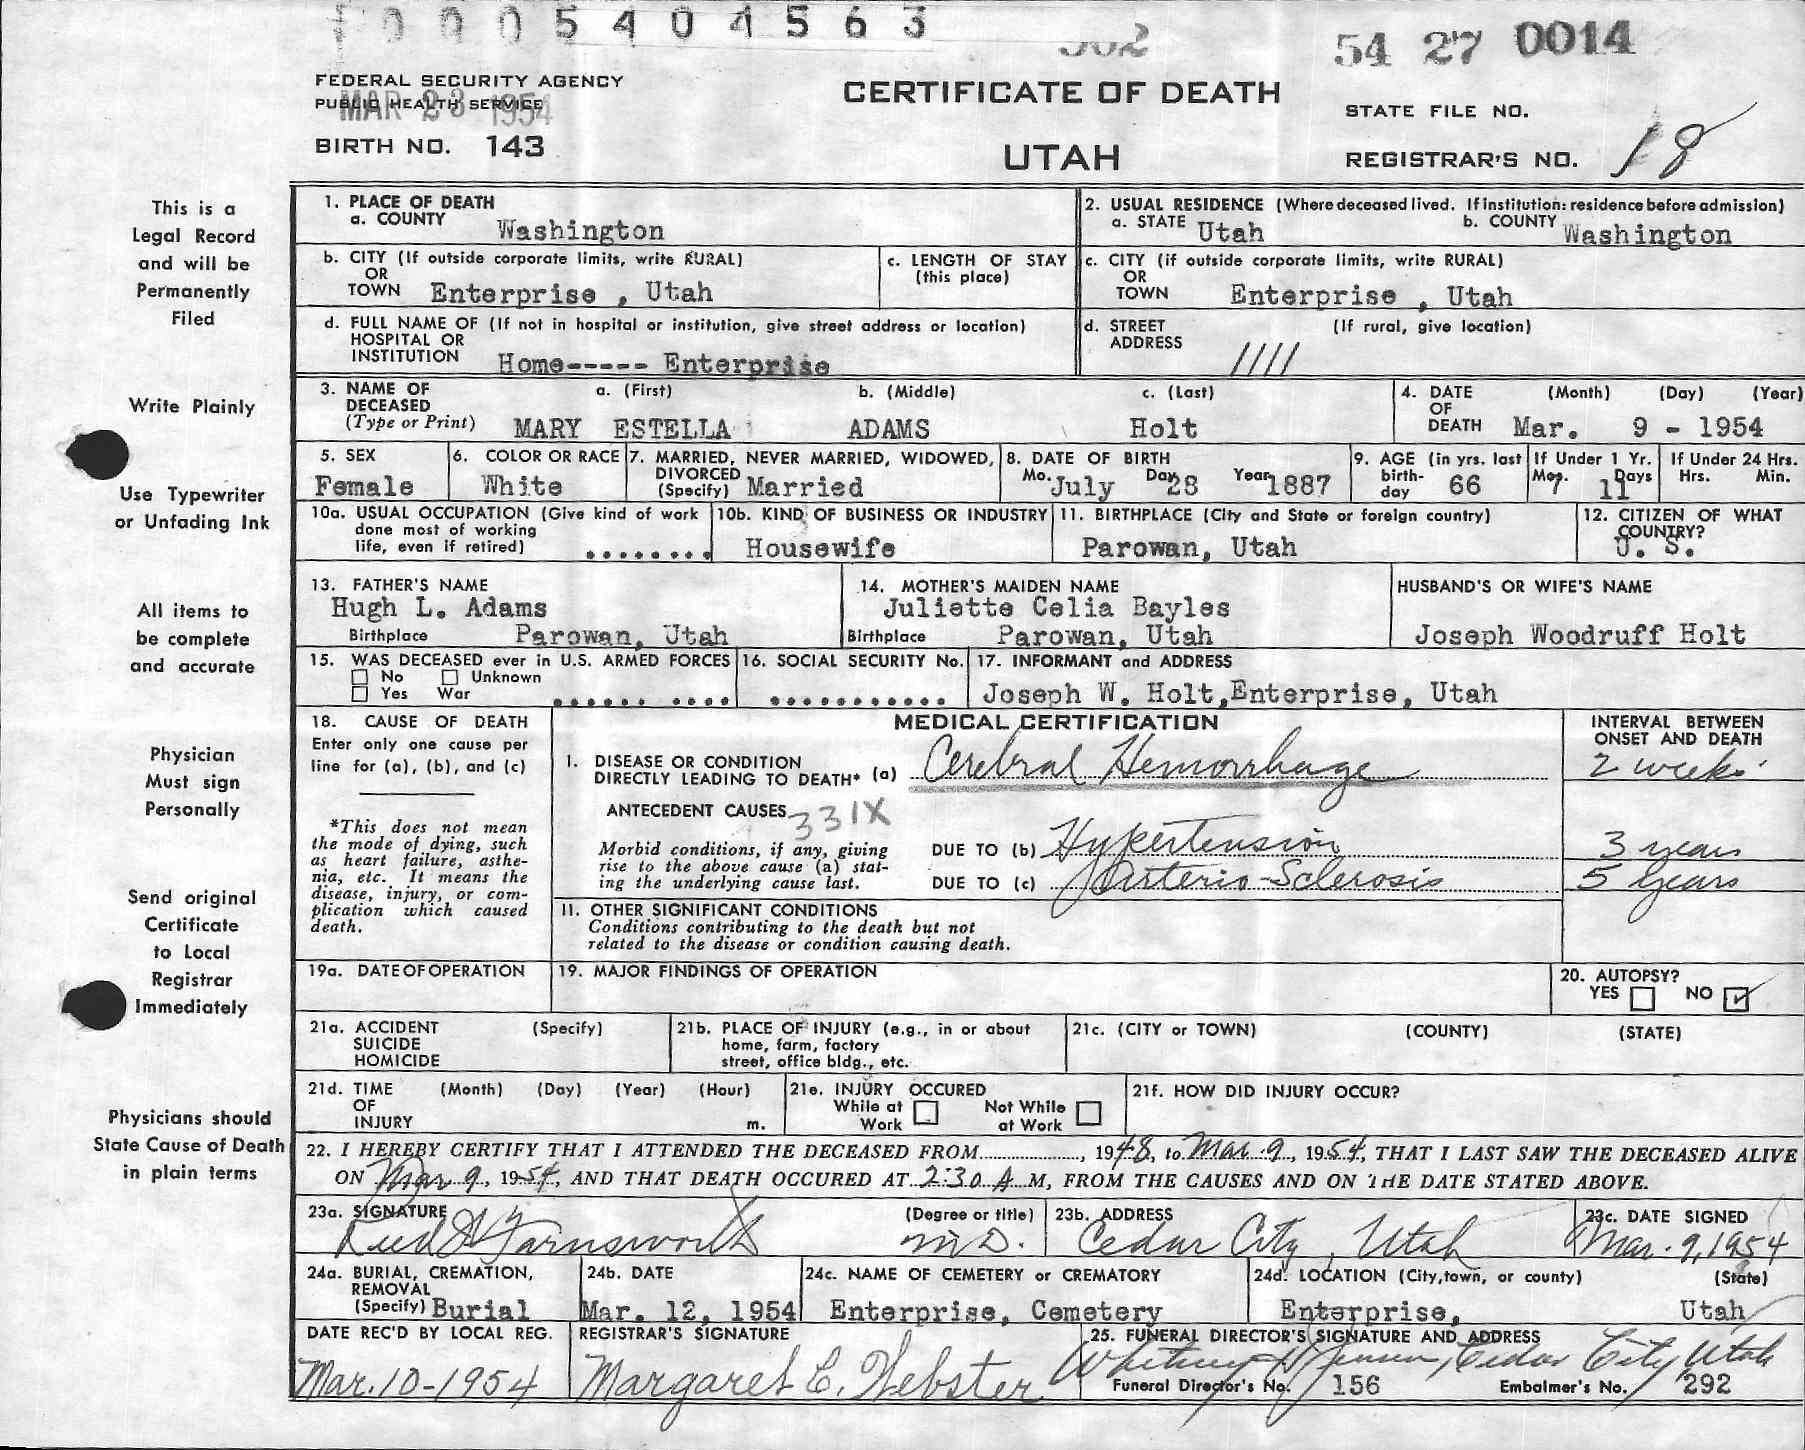 0005404563
54 27 0014
FEDERAL SECURITY AGENCY
PUBLIC HEALTH SERVICE
MAR 23 1954
BIRTH NO. 143
CERTIFICATE OF DEATH
UTAH
STATE FILE NO.
REGISTRAR'S NO. 18
This is a
Legal Record
and will be
Permanently
Filed
Write Plainly
Use Typewriter
or Unfading Ink
All items to
be complete
and accurate
Physician
Must sign
Personally
Send original
Certificate
to Local
Registrar
Immediately
Physicians should
State Cause of Death
in plain terms
1. PLACE OF DEATH
a. COUNTY Washington
2. USUAL RESIDENCE (Where deceased lived. If institution: residence before admission)
a. STATE Utah b. COUNTY Washington
b. CITY (If outside corporate limits, write RURAL)
OR
TOWN Enterprise , Utah
c. LENGTH OF STAY
(this place)
c. CITY (if outside corporate limits, write RURAL)
OR
TOWN Enterprise , Utah
d. FULL NAME OF (If not in hospital or institution, give street address or location)
HOSPITAL OR
INSTITUTION Home----- Enterprise
d. STREET (If rural, give location)
ADDRESS ////
3. NAME OF a. (First) b. (Middle) c. (Last)
DECEASED
(Type or Print) MARY ESTELLA ADAMS Holt
4. DATE (Month) (Day) (Year)
OF
DEATH Mar. 9 - 1954
5. SEX
Female
6. COLOR OR RACE
White
7. MARRIED, NEVER MARRIED, WIDOWED,
DIVORCED
(Specify) Married
8. DATE OF BIRTH
Mo. July Day 28 Year 1887
9. AGE (in yrs. last
birth-
day 66
If Under 1 Yr.
Mos. 7 11 Days
If Under 24 Hrs.
Hrs. Min.
10a. USUAL OCCUPATION (Give kind of work
done most of working
life, even if retired) ........
10b. KIND OF BUSINESS OR INDUSTRY
Housewife
11. BIRTHPLACE (City and State or foreign country)
Parowan, Utah
12. CITIZEN OF WHAT
COUNTRY?
U. S.
13. FATHER'S NAME
Hugh L. Adams
Birthplace Parowan, Utah
14. MOTHER'S MAIDEN NAME
Juliette Celia Bayles
Birthplace Parowan, Utah
HUSBAND'S OR WIFE'S NAME
Joseph Woodruff Holt
15. WAS DECEASED ever in U.S. ARMED FORCES
No Unknown
Yes War ...... ....
16. SOCIAL SECURITY No.
...........
17. INFORMANT and ADDRESS
Joseph W. Holt, Enterprise, Utah
18. CAUSE OF DEATH
Enter only one cause per
line for (a), (b), and (c)
*This does not mean
the mode of dying, such
as heart failure, asthe-
nia, etc. It means the
disease, injury, or com-
plication which caused
death.
MEDICAL CERTIFICATION
INTERVAL BETWEEN
ONSET AND DEATH
I. DISEASE OR CONDITION
DIRECTLY LEADING TO DEATH* (a) Cerebral Hemorrhage 2 weeks
ANTECEDENT CAUSES 331X
Morbid conditions, if any, giving
rise to the above cause (a) stat-
ing the underlying cause last.
DUE TO (b) Hypertension 3 years
DUE TO (c) Arterio-Sclerosis 5 years
11. OTHER SIGNIFICANT CONDITIONS
Conditions contributing to the death but not
related to the disease or condition causing death.
19a. DATE OF OPERATION
19. MAJOR FINDINGS OF OPERATION
20. AUTOPSY?
YES NO ✓
21a. ACCIDENT (Specify)
SUICIDE
HOMICIDE
21b. PLACE OF INJURY (e.g., in or about
home, farm, factory
street, office bldg., etc.
21c. (CITY or TOWN) (COUNTY) (STATE)
21d. TIME (Month) (Day) (Year) (Hour)
OF
INJURY m.
21e. INJURY OCCURED
While at Not While
Work at Work
21f. HOW DID INJURY OCCUR?
22. I HEREBY CERTIFY THAT I ATTENDED THE DECEASED FROM........, 1948, to Mar. 9, 1954, THAT I LAST SAW THE DECEASED ALIVE
ON Mar 9, 1954, AND THAT DEATH OCCURED AT 2:30 A M, FROM THE CAUSES AND ON THE DATE STATED ABOVE.
23a. SIGNATURE (Degree or title)
Farnsworth M.D.
23b. ADDRESS
Cedar City, Utah
23c. DATE SIGNED
Mar. 9, 1954
24a. BURIAL, CREMATION,
REMOVAL
(Specify) Burial
24b. DATE
Mar. 12, 1954
24c. NAME OF CEMETERY or CREMATORY
Enterprise, Cemetery
24d. LOCATION (City, town, or county) (State)
Enterprise, Utah
DATE REC'D BY LOCAL REG.
Mar. 10-1954
REGISTRAR'S SIGNATURE
Margaret C. Webster
25. FUNERAL DIRECTOR'S SIGNATURE AND ADDRESS
Cedar City, Utah
Funeral Director's No. 156 Embalmer's No. 292